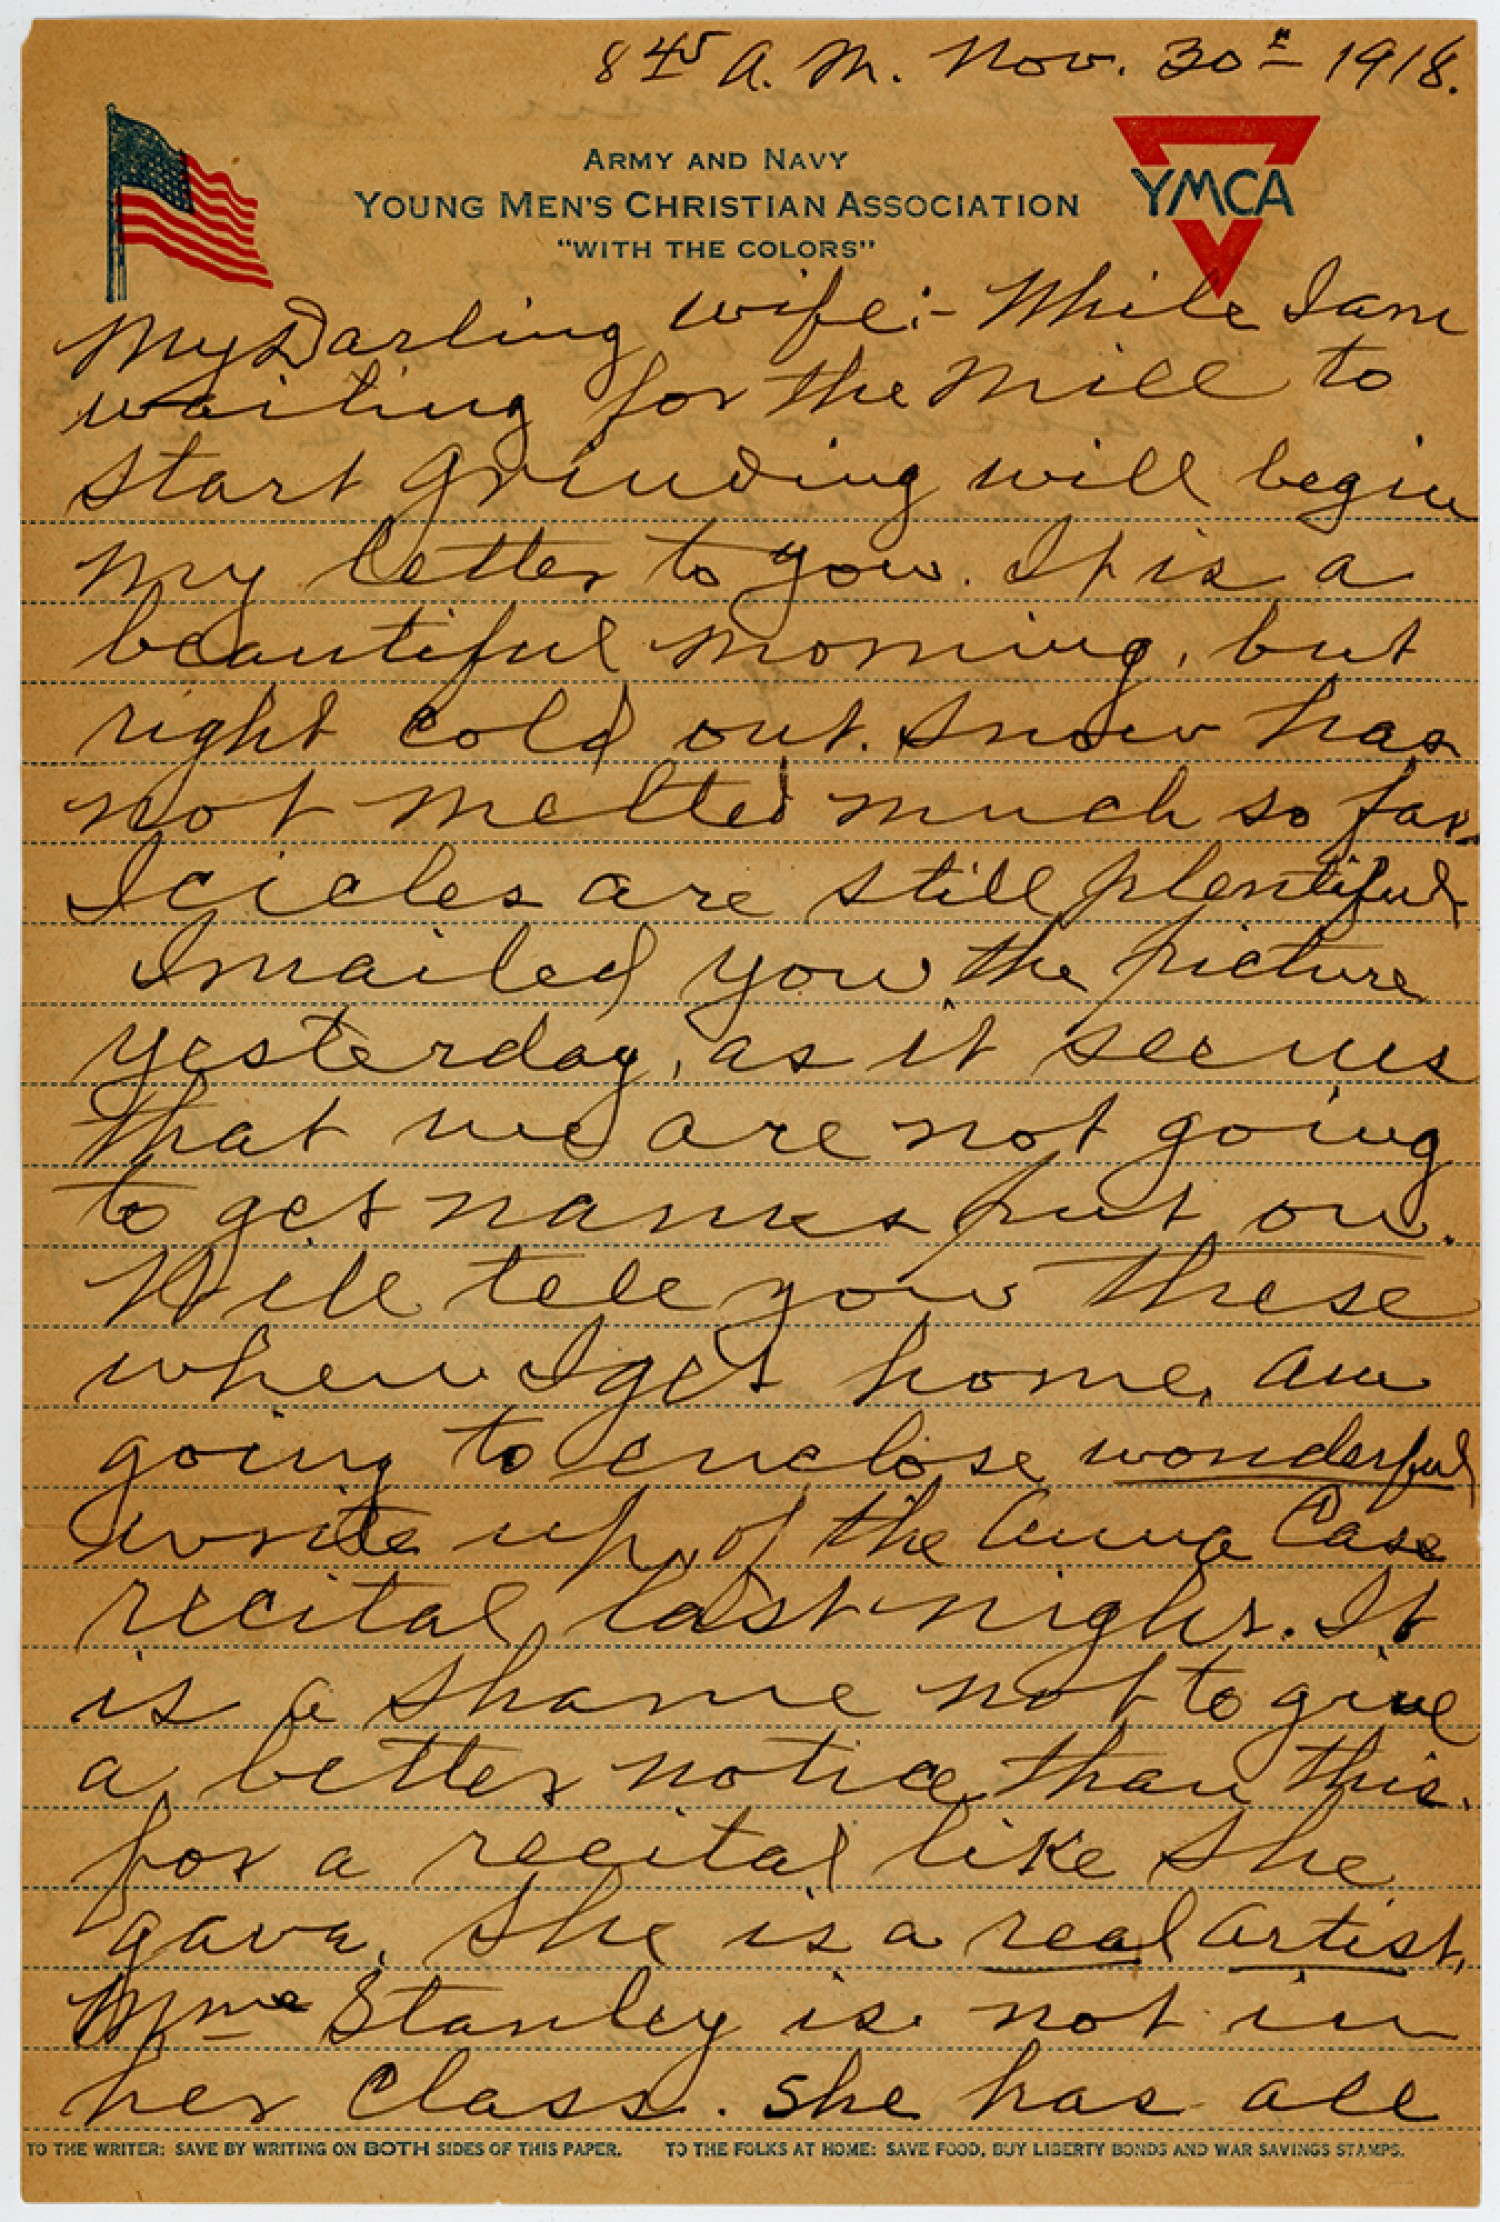 8 45 A. M. Nov. 30th 1918.
ARMY AND NAVY
YOUNG MEN'S CHRISTIAN ASSOCIATION
"WITH THE COLORS"
YMCA
My Darling wife:- While I am
waiting for the Mill to
start Grinding will begin
my letter to you. It is a
beautiful morning, but
right cold out. Snow has
not melted much so far.
Icicles are still plentiful
I mailed you the picture
yesterday, as it seems
that we are not going
to get names put on.
Will tell you these
when I get home, am
going to enclose wonderful
write up of the Anna Case
recital last night. It
is a shame not to give
a better notice than this.
for a recital like she
gave. She is a real artist,
Mme Stanley is not in
her class. She has all
TO THE WRITER: SAVE BY WRITING ON BOTH SIDES OF THIS PAPER. TO THE FOLKS AT HOME: SAVE FOOD, BUY LIBERTY BONDS AND WAR SAVINGS STAMPS.